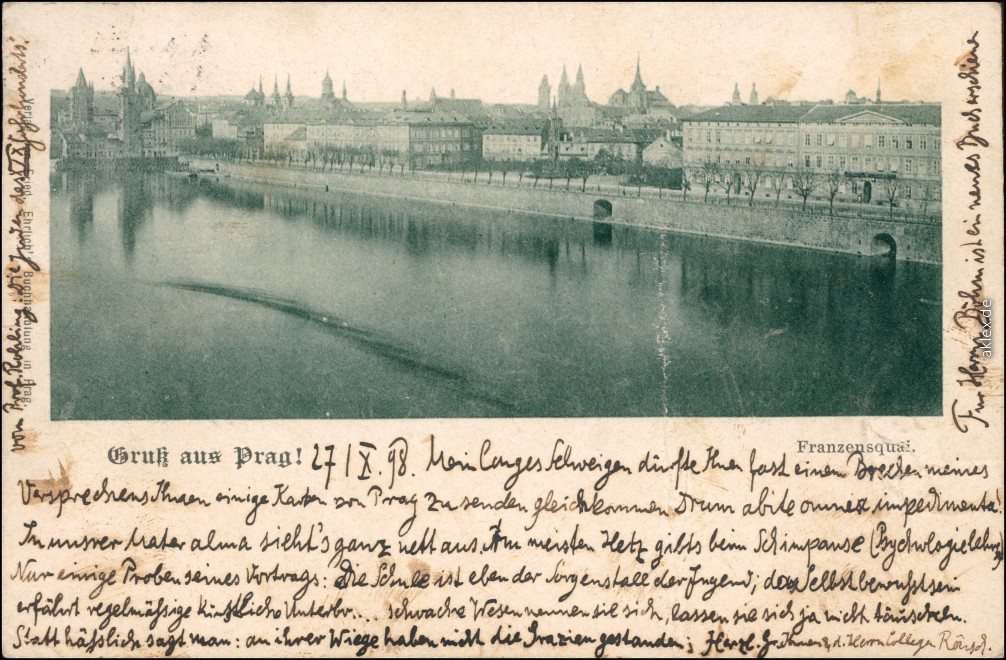 Gruß aus Prag!
Franzensquai.
27/IX 98. Mein langes Schweigen dürfte Ihnen fast einem Brechen meines
Versprechens Ihnen einige Karten von Prag zu senden gleichkommen. Drum abite omnes impedimenta.
In unsrer Mater alma sieht's ganz nett aus. Am meisten Hetz gibts beim Schimpanse (Psychologielehrer)
Nur einige Proben seines Vortrags: Die Schule ist eben der Sorgenstall der Jugend; das Selbstbewußtsein
erfährt regelmäßige künstliche Unterbr... schwache Wesen nennen sie sich, lassen sie sich ja nicht täuschen.
Statt häßlich sagt man: an ihrer Wiege haben nicht die Grazien gestanden; Herzl. Gr. Ihnen & d. Herrn Collegen
Für Herrn Böhm ist ein neues Buch erschienen
vom Prof. Rohling: die Juden des XIX Jahrhunderts!
Verlag Fried. Ehrlich's Buchhandlung in Prag.
aklex.de